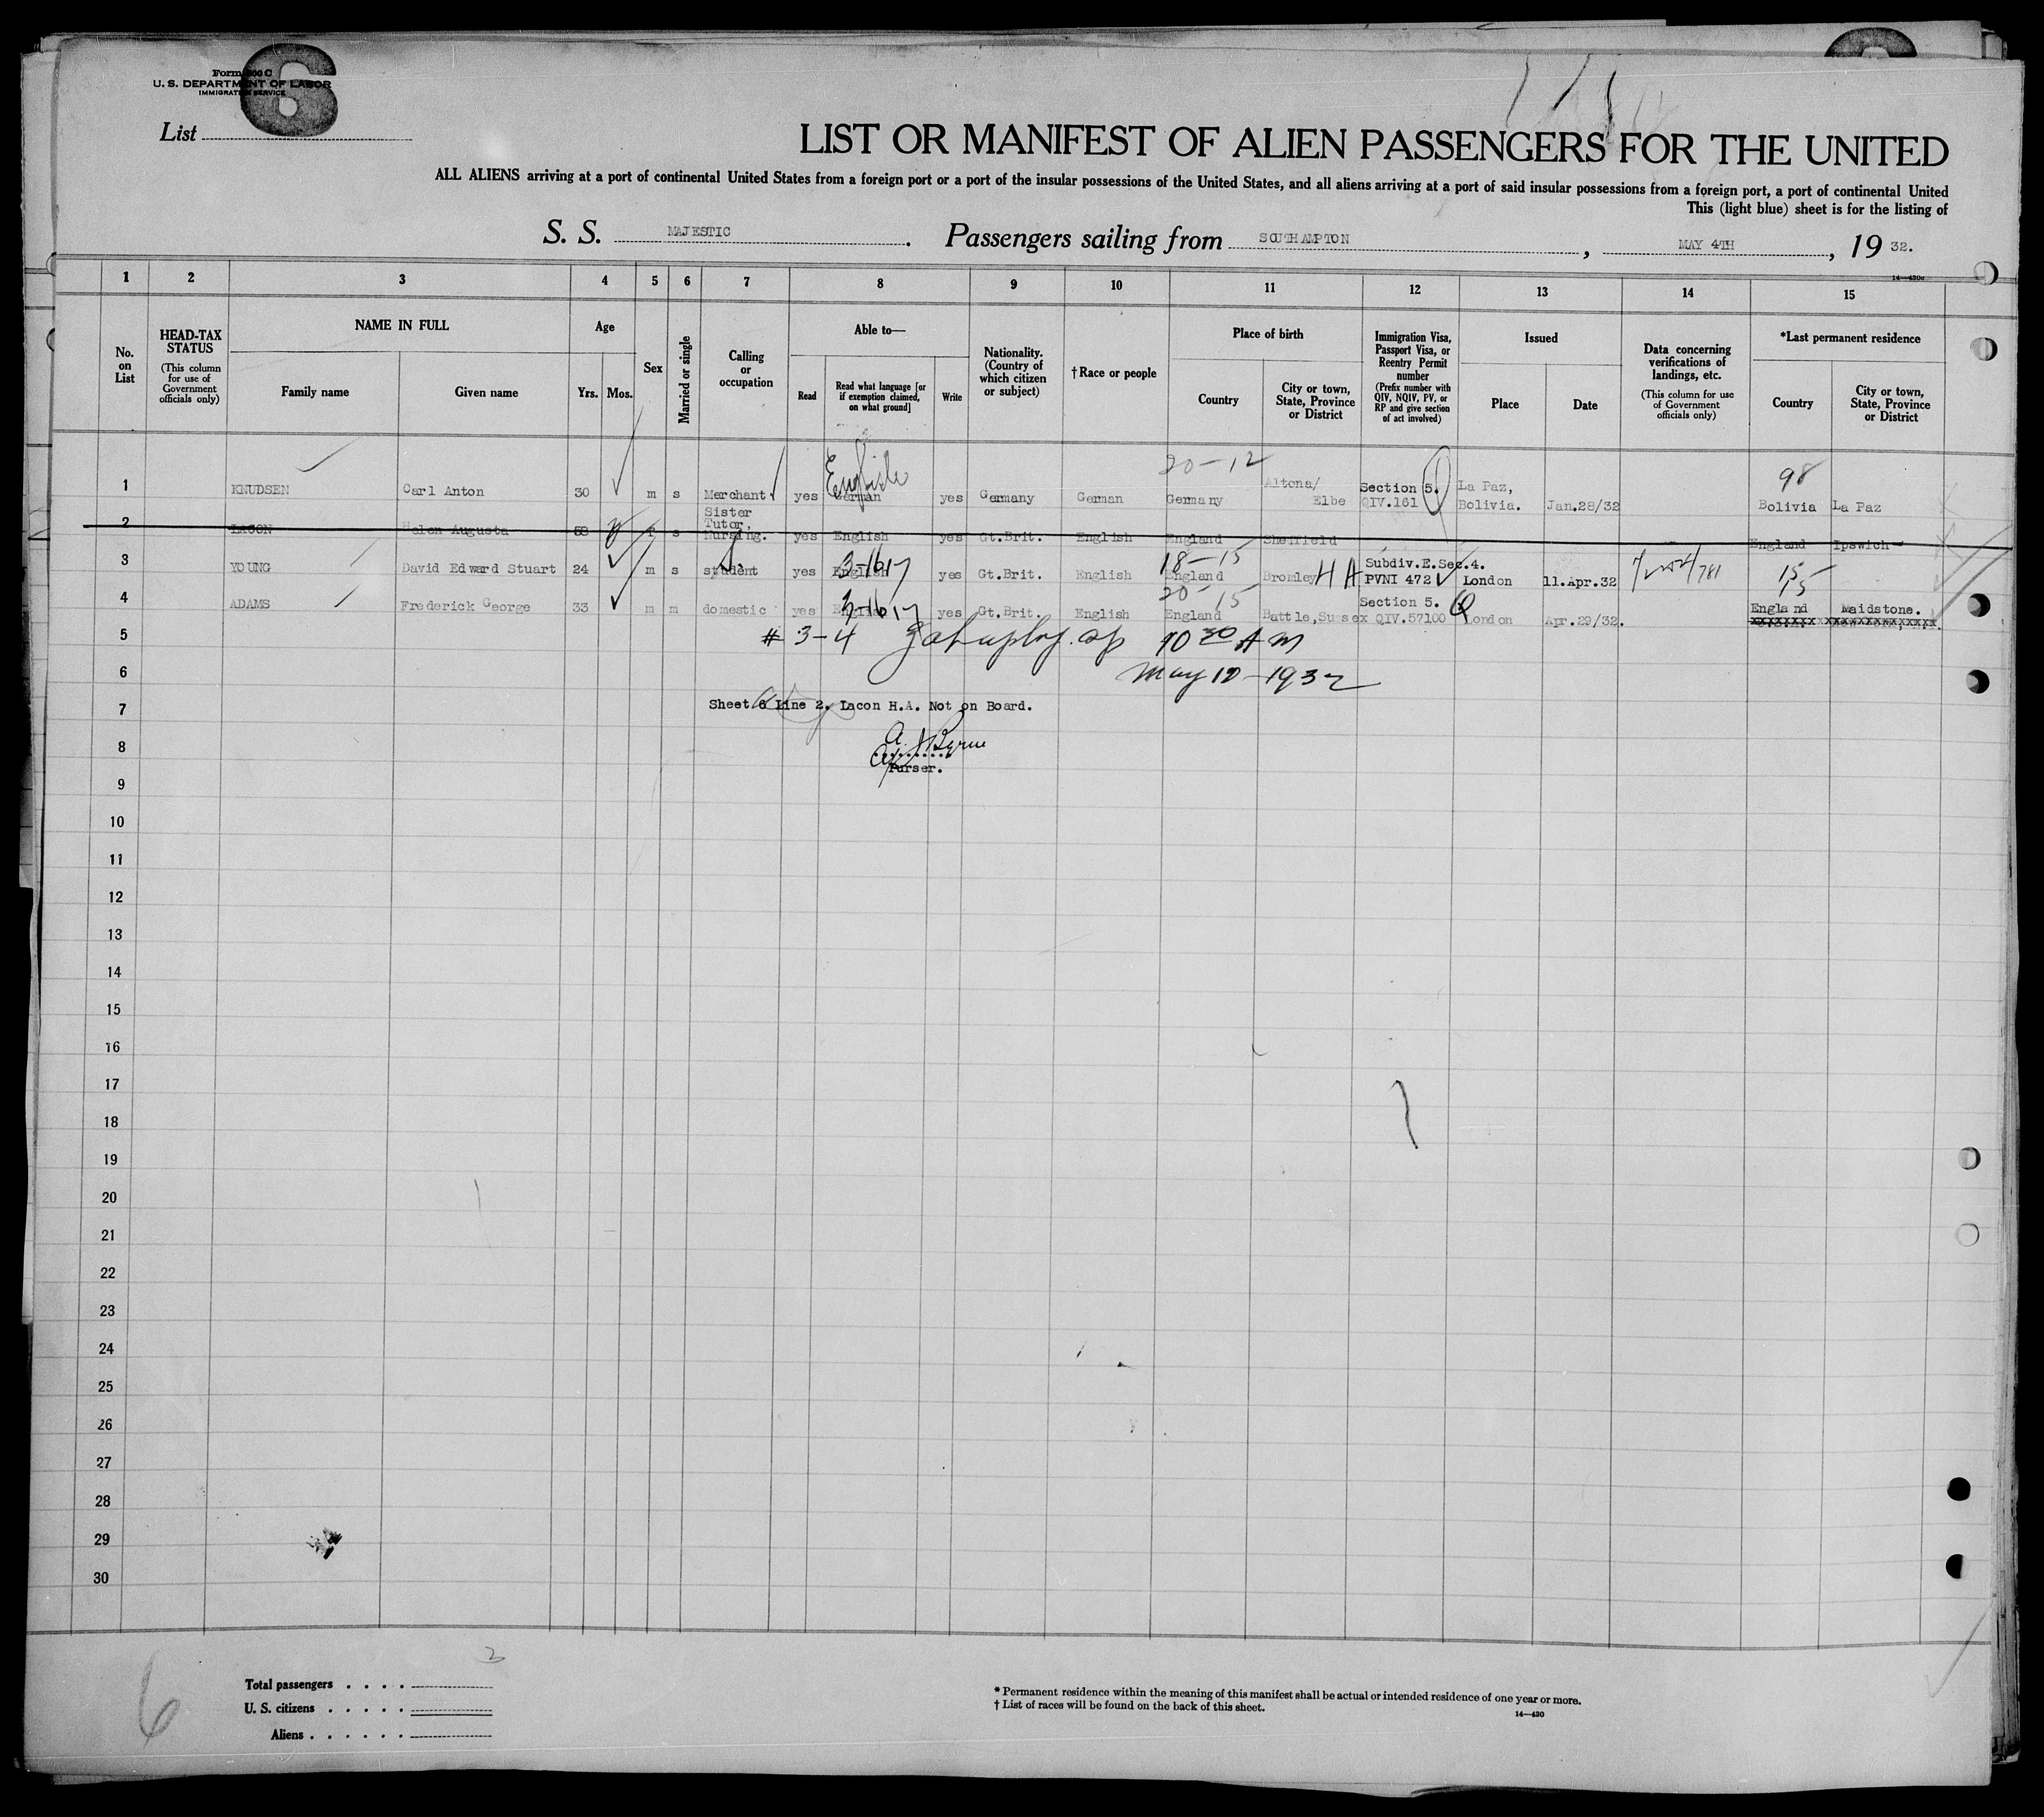 Form 500 C
U. S. DEPARTMENT OF LABOR
IMMIGRATION SERVICE
6
List
LIST OR MANIFEST OF ALIEN PASSENGERS FOR THE UNITED
ALL ALIENS arriving at a port of continental United States from a foreign port or a port of the insular possessions of the United States, and all aliens arriving at a port of said insular possessions from a foreign port, a port of continental United
This (light blue) sheet is for the listing of
S. S. MAJESTIC. Passengers sailing from SOUTHAMPTON, MAY 4TH, 19 32.
14—430c
1 2 3 4 5 6 7 8 9 10 11 12 13 14 15
No. on List
HEAD-TAX STATUS (This column for use of Government officials only)
NAME IN FULL
Family name Given name
Age
Yrs. Mos.
Sex
Married or single
Calling or occupation
Able to—
Read Read what language [or if exemption claimed, on what ground] Write
Nationality. (Country of which citizen or subject)
†Race or people
Place of birth
Country City or town, State, Province or District
Immigration Visa, Passport Visa, or Reentry Permit number (Prefix number with QIV, NQIV, PV, or RP and give section of act involved)
Issued
Place Date
Data concerning verifications of landings, etc. (This column for use of Government officials only)
*Last permanent residence
Country City or town, State, Province or District
English 20-12 98
1 KNUDSEN Carl Anton 30 m s Merchant yes German yes Germany German Germany Altona/ Elbe Section 5. QIV.161 La Paz, Bolivia. Jan.28/32 Bolivia La Paz
2 LACON Helen Augusta 58 f s Sister Tutor, Nursing. yes English yes Gt.Brit. English England Sheffield England Ipswich
3-1617 18-15 15
3 YOUNG David Edward Stuart 24 m s student yes English yes Gt.Brit. English England Bromley H A Subdiv.E.Sec.4. PVNI 472 London 11.Apr.32 781
3-1617 20-15 15
4 ADAMS Frederick George 33 m m domestic yes English yes Gt.Brit. English England Battle,Sussex Section 5. QIV.57100 London Apr.29/32. England Maidstone.
5 # 3-4 10 30 AM
6 May 10-1932
7 Sheet 6 Line 2. Lacon H.A. Not on Board.
8 A. J Byrne
Purser.
9
10
11
12
13
14
15
16
17
18
19
20
21
22
23
24
25
26
27
28
29
30
6
Total passengers
U. S. citizens
Aliens
* Permanent residence within the meaning of this manifest shall be actual or intended residence of one year or more.
† List of races will be found on the back of this sheet.
14—430